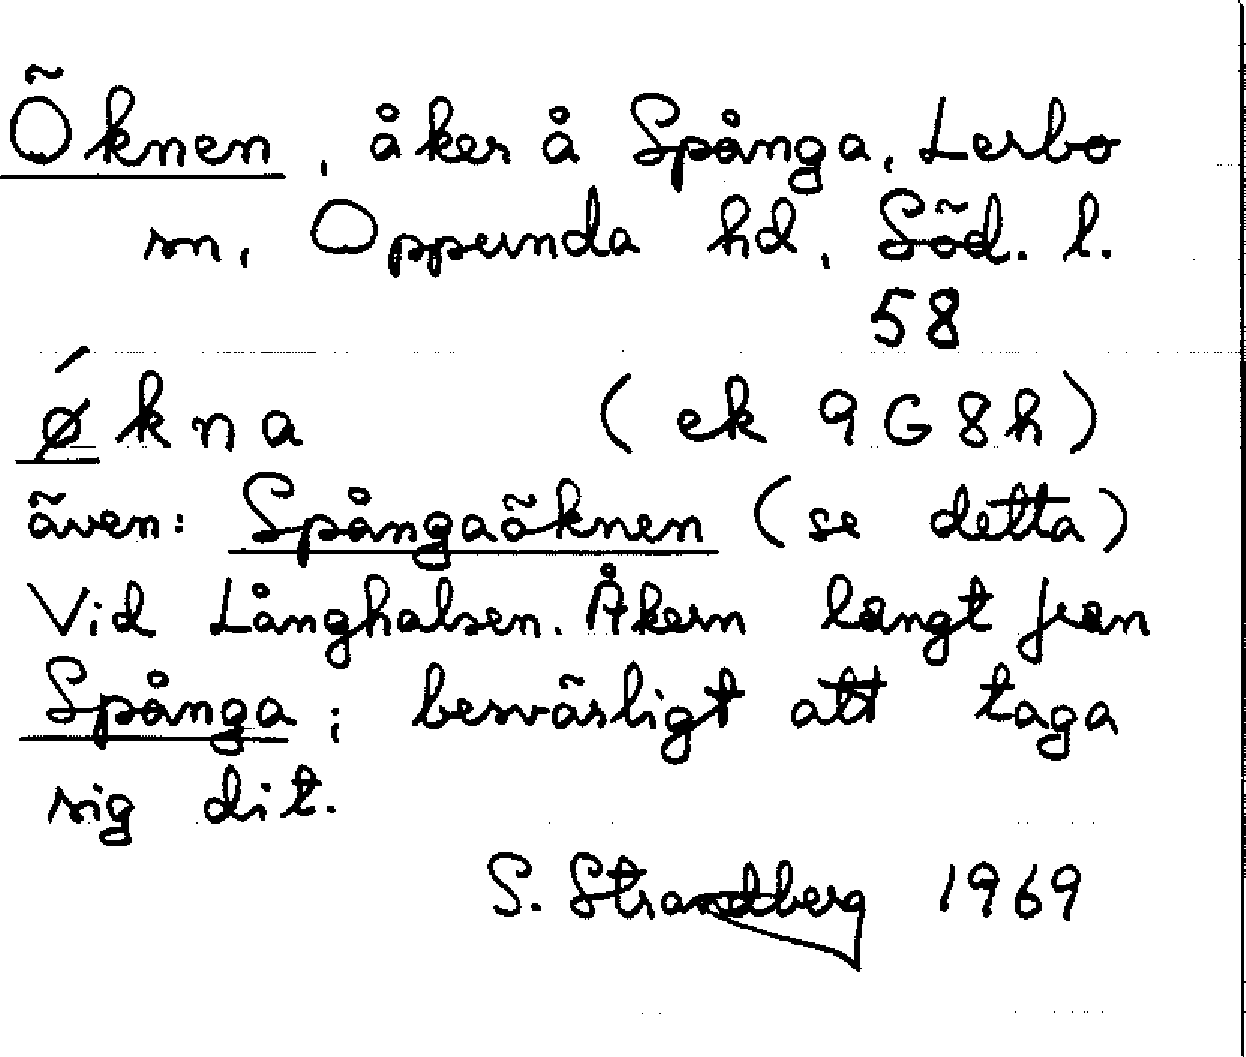 Öknen, åker å Spånga, Lerbo
sn, Oppunda hd, Söd. l.
58
ǿkna (ek 9G8h)
även: Spångaöknen (se detta)
Vid Långhalsen. Åkern langt fran
Spånga; besvärligt att taga
sig dit.
S. Strandberg 1969